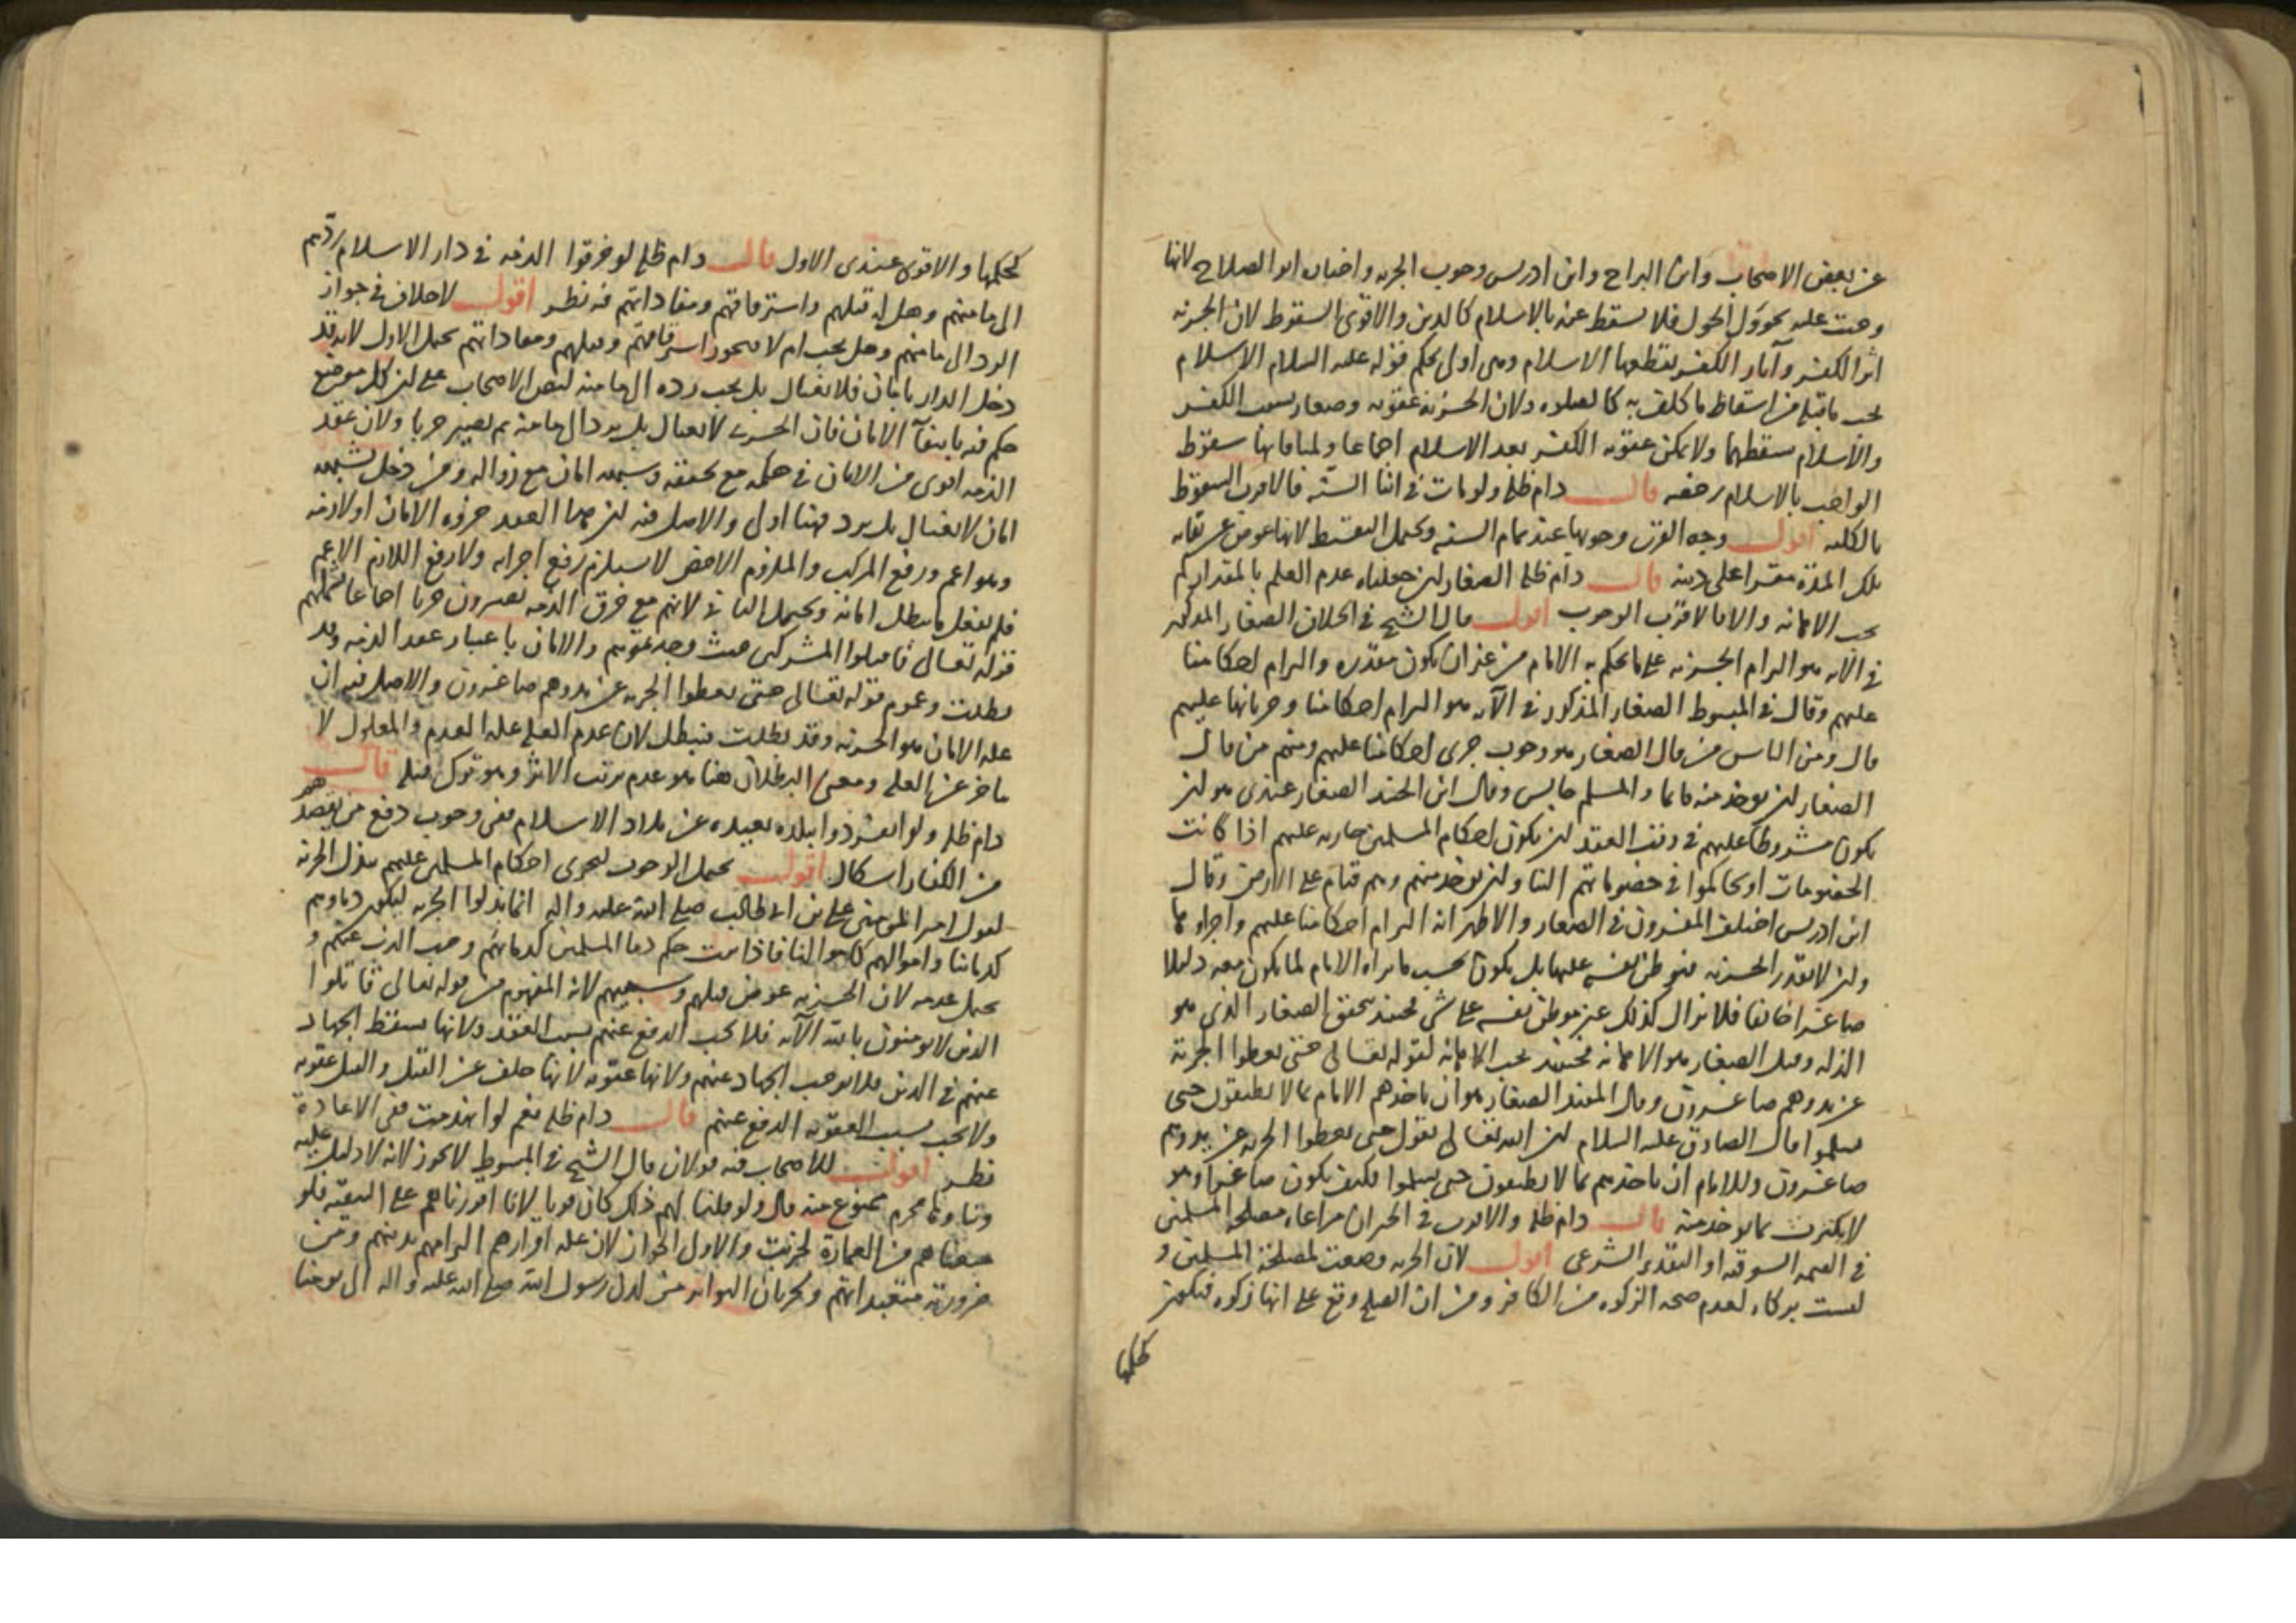 عن بعض الاصحاب وابن البراج وابن ادريس وجوب الجزية واختاره ابو الصلاح لانها
وجبت عليه بحؤول الحول فلا يسقط عنه بالاسلام كالدين والاقوى السقوط لان الجزية
اثر الكفر وآثار الكفر يقطعها الاسلام وهي اولى بحكم قوله عليه السلام الاسلام
يجب ما قبله من اسقاط ما كلف به كالصلوة ولان الجزية عقوبة وصغار بسبب الكفر
والاسلام يسقطهما ولا يمكن عقوبة الكفر بعد الاسلام اجماعا ولمنافاتها سقوط
الواجب بالاسلام رخصة قال دام ظله ولو مات في اثنا السنة فالاقرب السقوط
بالكلية اقول وجه القرب وجوبها عند تمام السنة ويحتمل التقسيط لانها عوض عن بقائه
تلك المدة مقرا على دينه قال دام ظله الصغار ان جعلناه عدم العلم بالمقدار لم
يجب الاهانة والا فالاقرب الوجوب اقول قال الشيخ في الخلاف الصغار المذكور
في الآية هو التزام الجزية على ما يحكم به الامام من غير ان يكون مقدرة والتزام احكامنا
عليهم وقال في المبسوط الصغار المذكور في الآية هو التزام احكامنا وجريانها عليهم
قال ومن الناس من قال الصغار هو وجوب جرى احكامنا عليهم ومنهم من قال
الصغار ان يوخذ منه قايما والمسلم جالس وقال ابن الجنيد الصغار عندى هو ان
يكون مشروطا عليهم في وقت العقد ان يكون احكام المسلمين جارية عليهم اذا كانت
الخصومات او تحاكموا في خصوماتهم الينا وان توخذ منهم وهم قيام على الارض وقال
ابن ادريس اختلف المفسرون في الصغار والاظهر انه التزام احكامنا عليهم واجراوها
وان لا يقدر الجزية فيوطن نفسه عليها بل يكون بحسب ما يراه الامام لما يكون معه ذليلا
صاغرا خائفا فلا يزال كذلك غير موطن نفسه على شي فحينئذ يتحقق الصغار الذى هو
الذلة وقيل الصغار هو الاهانة فحينئذ يجب الاهانة لقوله تعالى حتى يعطوا الجزية
عن يد وهم صاغرون وقال المفيد الصغار هو ان ياخذهم الامام بما لا يطيقون حتى
يسلموا قال الصادق عليه السلام ان الله تعالى يقول حتى يعطوا الجزية عن يد وهم
صاغرون وللامام ان ياخذهم بما لا يطيقون حتى يسلموا فكيف يكون صاغرا وهو
لا يكترث بما يوخذ منه قال دام ظله والاقرب في الجبران مراعاة مصلحة المسلمين
في القيمة السوقية او التقدير الشرعى اقول لان الجزية وضعت لمصلحة المسلمين و
ليست بزكاة لعدم صحة الزكوة من الكافر ومن ان الصلح وقع على انها زكوة فيكون
كحكمها
كحكمها والاقوى عندى الاول قال دام ظله لو خرقوا الذمة في دار الاسلام ردّهم
الى مامنهم وهل له قتلهم واسترقاقهم ومفاداتهم فيه نظر اقول لا خلاف في جواز
الرد الى مامنهم وهل يجب ام لا فيجوز استرقاقهم وقتلهم ومفاداتهم يحتمل الاول لانه قد
دخل الدار بامان فلا يغتال بل يجب رده الى مامنه لنص الاصحاب على ان كل موضع
حكم فيه بانتفآ الامان فان الحربى لا يغتال بل يرد الى مامنه ثم يصير حربا ولان عقد
الذمة اقوى من الامان في حكمه مع تحققه وشبهه امان مع زواله ومن دخل بشبهة
امان لا يغتال بل يرد فهنا اولى والاصل فيه ان هذا العقد جزؤه الامان او لازمه
وهو اعم ورفع المركب والملزوم الاخص لا يستلزم رفع اجزائه ولا رفع اللازم الاعم
فلم يفعل ما يبطل امانه ويحتمل الثاني لانهم مع خرق الذمة يصيرون حربا اجماعا فيشملهم
قوله تعالى فاقتلوا المشركين حيث وجدتموهم والامان باعتبار عقد الذمة وقد
بطلت وعموم قوله تعالى حتى يعطوا الجزية عن يد وهم صاغرون والاصل فيه ان
علة الامان هو الجزية وقد بطلت فيبطل لان عدم العلة علة العدم والمعلول لا
تاخر عن العلة ومعنى البطلان هنا هو عدم ترتب الاثر وهو ترك قتله قال
دام ظله ولو انفردوا ببلدة بعيدة عن بلاد الاسلام ففي وجوب دفع من يقصدهم
من الكفار اشكال اقول يحتمل الوجوب لتجرى احكام المسلمين عليهم ببذل الجزية
لقول امير المومنين علي بن ابي طالب صلى الله عليه واله انما بذلوا الجزية ليكون دماوهم
كدمائنا واموالهم كاموالنا فاذا ثبت حكم دما المسلمين لدمائهم وجب الذب عنهم و
يحتمل عدمه لان الجزية عوض قتلهم وسبيهم لانه المفهوم من قوله تعالى قاتلوا
الذين لا يومنون بالله الآية فلا يجب الدفع عنهم بسبب العقد ولانها يسقط الجهاد
عنهم في الدين فلا يوجب الجهاد عنهم ولانها عقوبة لانها خلف عن القتل والقتل عقوبة
ولا يجب بسبب العقوبة الدفع عنهم قال دام ظله نعم لو انهدمت ففي الاعادة
نظر اقول للاصحاب فيه قولان قال الشيخ في المبسوط لا يجوز لانه لا دليل عليه
وبناوها محرم ممنوع منه قال ولو قلنا لهم ذلك كان قويا لانا اقررناهم على التبقية فلو
منعناهم من العمارة لخربت والاول الجواز لان علة اقرارهم التزامهم بدينهم ومن
ضرورته متعبداتهم وبجريان العادة من لدن رسول الله صلى الله عليه واله الى يومنا